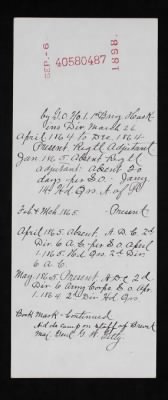 SEP.-6
40580487
1898.
by G.O. No. 1. 1st Brig. Hask
ins Div. March 26
April 1864 to Dec. 1864
Present Regtl Adjutant
Jan 1865 Absent Regtl
adjutant. absent 20
days per S.O.
Hd Qrs A of P.
Feb & Mch 1865. Present
April 1865 Absent. A.D.C. 2d
Div. 6 A.C. per S.O. April
1. 1865. Hd. Qrs. 2d Div.
6 A.C.
May 1865. Present A.D.C 2d
Div 6 Army Corps S.O. Ap.
1. 1864 2d Div Hd Qrs
Book Mark - Continued
Aid de camp on staff of Brevet
Maj. Genl. G. W. Getty.